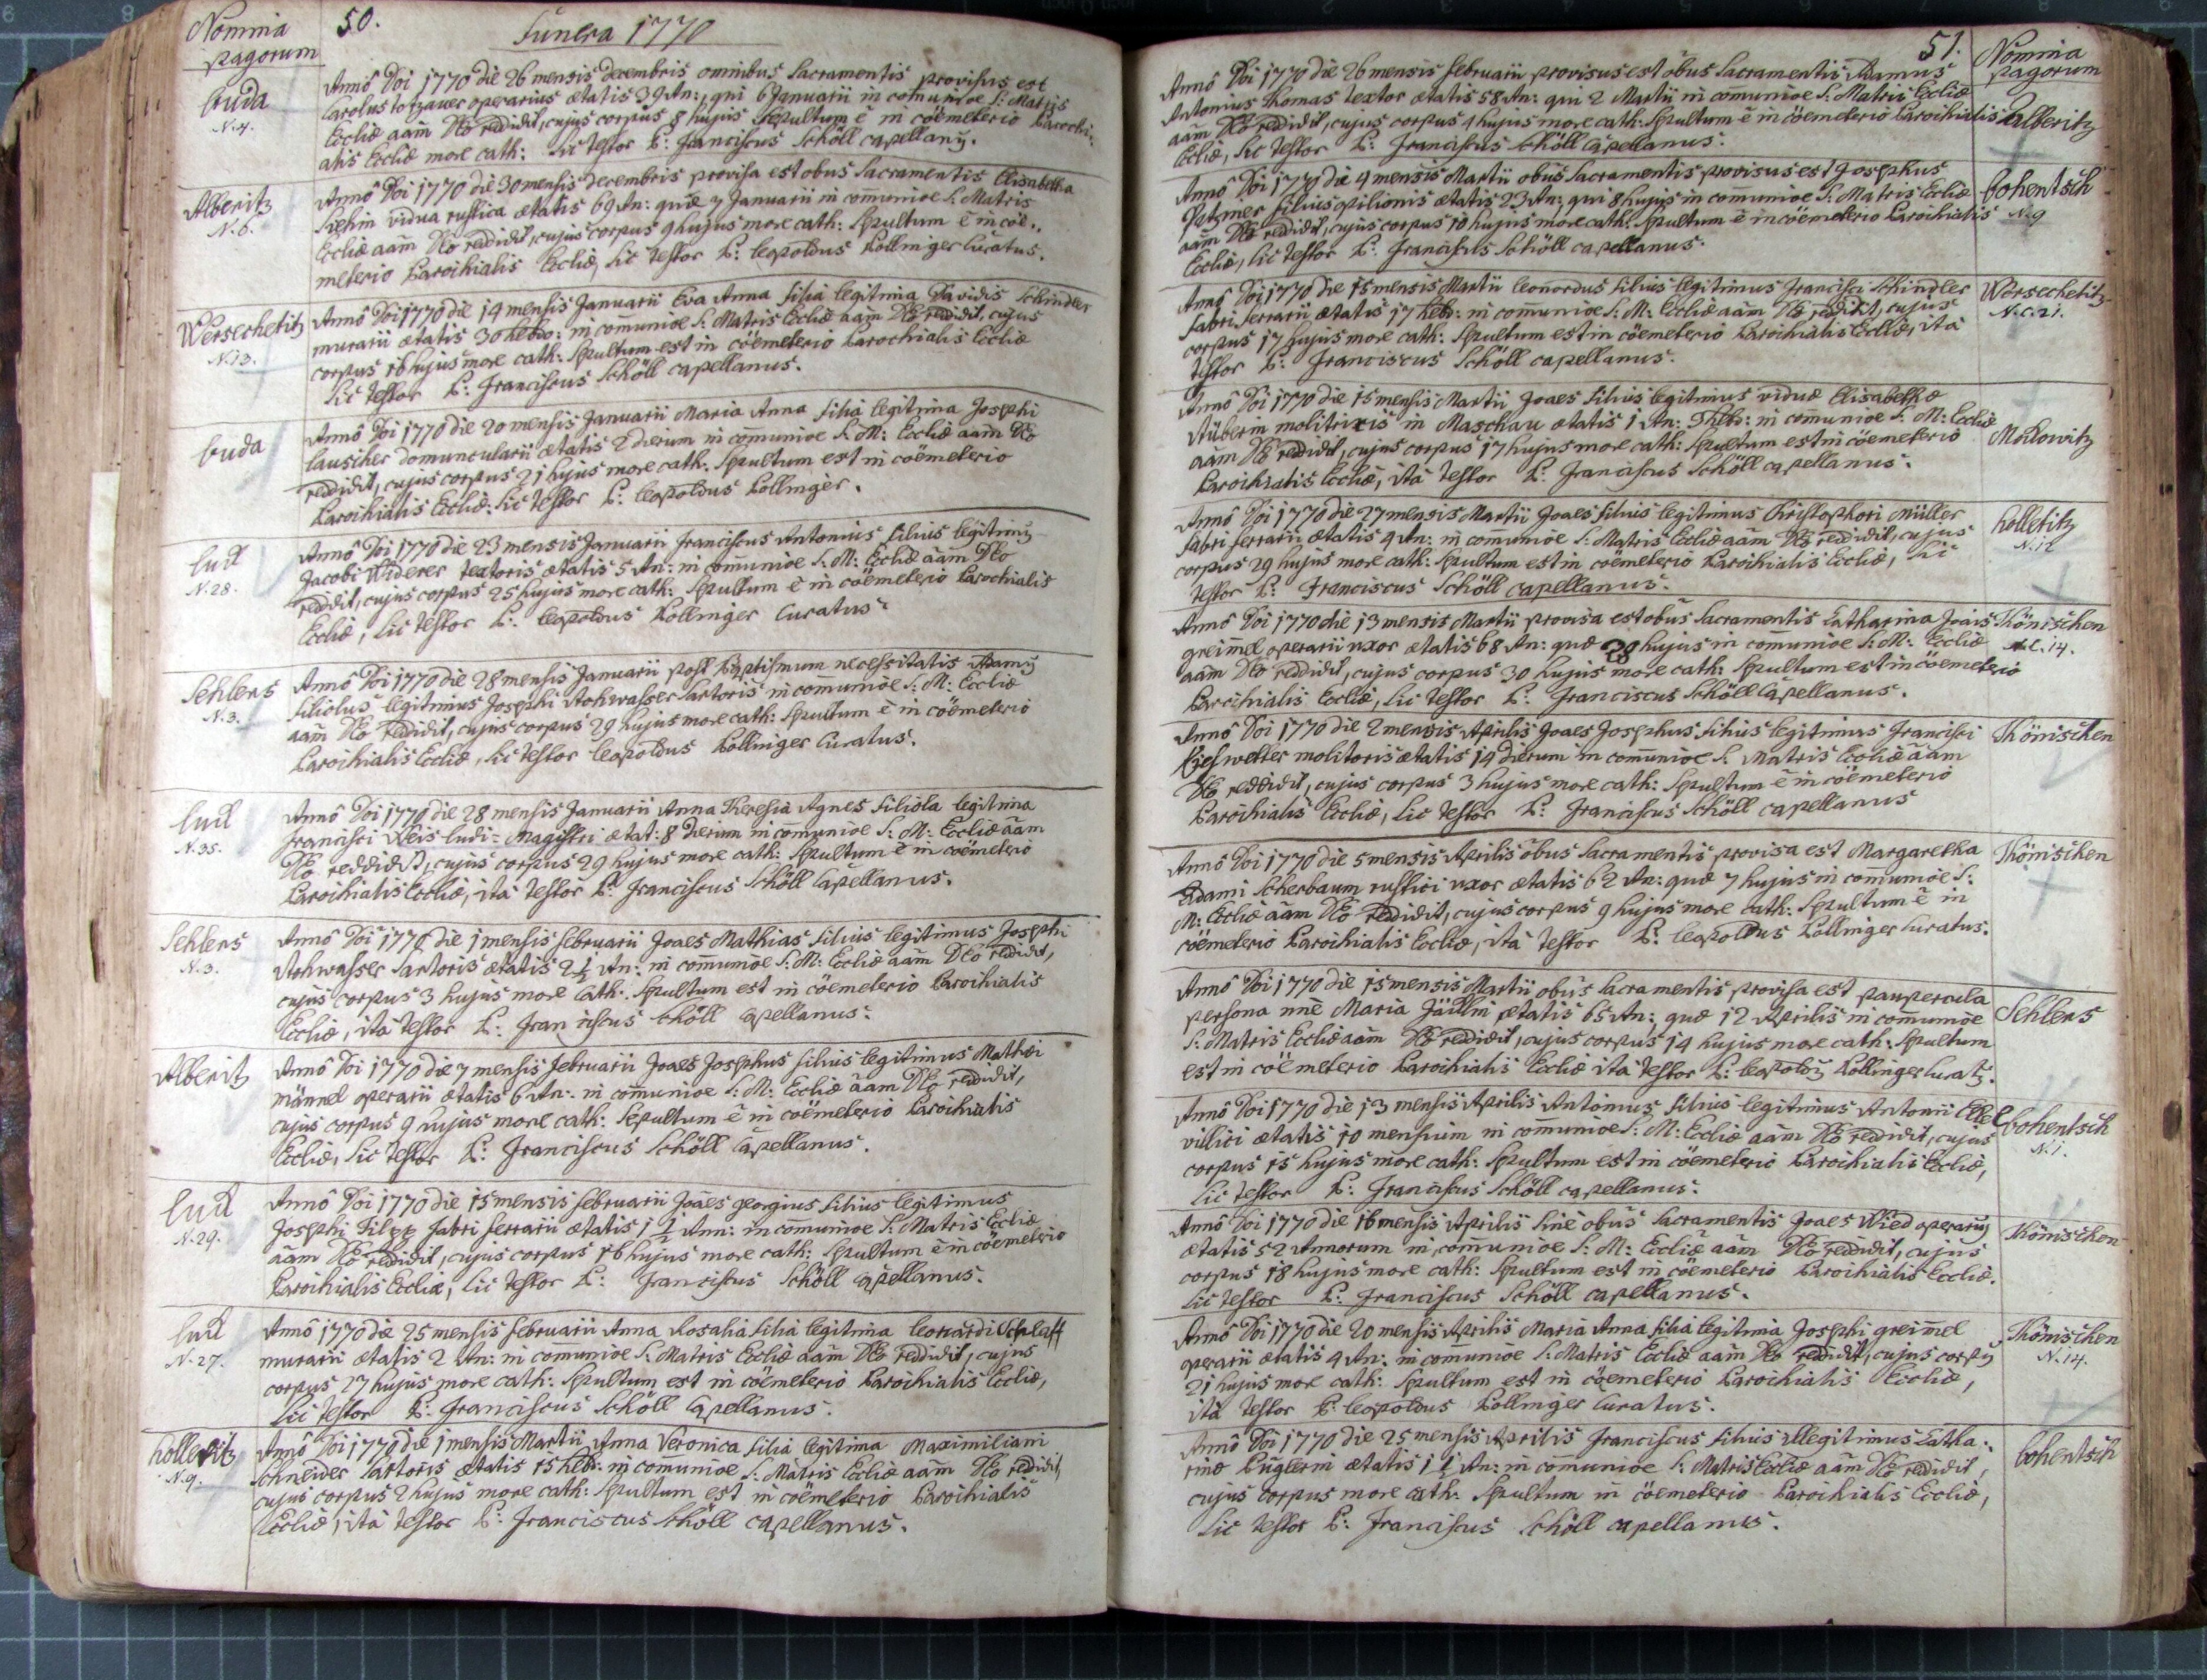 Nomina
pagorum
50.
Funera 1770
buda
N. 4.
Annô Doi 1770 die 26 mensis decembris omnibus Sacramentis provisus est
Carolus operarius ætatis 39 An:, qui 6 Januarii in comunioe S: Matris
Ecclîæ aâm Dêo reddidit, cujus corpus 8 hujus Sepultum ê in cöemeterio Parochi:
alis Ecclîæ more cath: Sic testor P: Franciscus Schöll capellanȳ.
Alberitz
N. 6.
Annô Doi 1770 die 30 mensis decembris provisa est ôbus Sacramentis Elisabetha
vidua rustica ætatis 69 An: quæ 7 Januarii in comunioe S: Matris
Ecclîæ aâm Dêo reddidit, cujus corpus 9 hujus more cath: Spultum ê in cöe:
meterio Parochialis Ecclîæ, Sic testor P: Leopoldus Pollinger Curatus.
Wersechetitz
N. 13.
Annô Doi 1770 die 14 mensis Januarii Eva Anna filia legitima Davidis Schindler
murarii ætatis 30 hebo: in comunioe S: Matris Ecclîæ aâm Dêo reddidit, cujus
corpus 16 hujus more cath: Spultum est in cöemeterio Parochialis Ecclîæ
Sic testor P: Franciscus Schöll capellanus.
buda
Annô Doi 1770 die 20 mensis Januarii Maria Anna filia legitima Josephi
lauscher domuncularii ætatis 2 dierum in comunioe S: M: Ecclîæ aâm Dêo
reddidit, cujus corpus 21 hujus more cath: Spultum est in coëmeterio
Parochialis Ecclîæ: Sic testor P: Leopoldus Pollinger.
lud
N. 28.
Annô Doi 1770 die 23 mensis Januarii Franciscus Antonius filius legitimȳ
Jacobi Widerer textoris ætatis 5 An: in comunioe S: M: Ecclîæ aâm Dêo
reddidit, cujus corpus 25 hujus more cath: Spultum ê in cöemeterio Parochialis
Ecclîæ, Sic testor P: Leopoldus Pollinger Curatus.
Sehlers
N. 3.
Annô Doi 1770 die 28 mensis Januarii post Baptismum necessitatis Adamȳ
filiolus legitimus Josephi Rohwasser Sartoris in comunioe S: M: Ecclîæ
aam Dêo reddidit, cujus corpus 29 hujus more cath: Spultum ê in cöemeterio
Parochialis Ecclîæ, Sic testor Leopoldus Pollinger Curatus.
lud
N. 35.
Annô Doi 1770 die 28 mensis Januarii Anna Theresia Agnes filiola legitima
Francisci Weis ludi-Magistri ætat: 8 dierum in comunioe S: M: Ecclîæ aâm
Dêo reddidit, cujus corpus 29 hujus more cath: Spultum ê in coëmeterio
Parochialis Ecclîæ, ita testor P: Franciscus Schöll Capellanus.
Sehlers
N. 3.
Annô Doi 1770 die 1 mensis februarii Joaes Mathias filius legitimus Josephi
Rohwasser Sartoris ætatis 2½ An: in comunioe S: M: Ecclîæ aâm Dêo reddidit,
cujus corpus 3 hujus more Cath: Spultum est in cöemeterio Parochialis
Ecclîæ, ita testor P: Franciscus Schöll Capellanus.
Alberitz
Annô Doi 1770 die 7 mensis februarii Joaes Josephus filius legitimus Mathæi
männel operarii ætatis 6 An: in comunioe S: M: Ecclîæ aâm Dêo reddidit,
cujus corpus 9 hujus more cath: Sepultum ê in coëmeterio Parochialis
Ecclîæ, Sic testor P: Franciscus Schöll Capellanus.
lud
N. 29.
Annô Doi 1770 die 15 mensis februarii Joaes georgius filius legitimus
Josephi Filpp fabri ferrarii ætatis 1½ Ann: in comunioe S: Matris Ecclîæ
aâm Dêo reddidit, cujus corpus 16 hujus more cath: Spultum ê in cöemeterio
Parochialis Ecclîæ, Sic testor P: Franciscus Schöll capellanus.
lud
N. 27.
Annô 1770 die 25 mensis februarii Anna Rosalia filia legitima leonardi Schlaff
murarii ætatis 2 An: in comunioe S: Matris Ecclîæ aâm Dêo reddidit, cujus
corpus 27 hujus more cath: Spultum est in cöemeterio Parochialis Ecclîæ,
Sic testor P: Franciscus Schöll Capellanus.
holletitz
N. 9.
Annô Doi 1770 die 1 mensis Martii Anna Veronica filia legitima Maximiliani
Schneider Sartoris ætatis 15 heb: in comunioe S: Matris Ecclîæ aâm Dêo reddidit
cujus corpus 2 hujus more cath: Spultum est in cöemeterio Parochialis
Ecclîæ, ita testor P: Franciscus Schöll capellanus.
51.
Nomina
pagorum
Annô Doi 1770 die 26 mensis februarii provisus est ôbus Sacramentis Adamus
Antonius Thomas textor ætatis 58 An: qui 2 Martii in comunioe S: Matris Ecclîæ
aâm Dêo reddidit, cujus corpus 4 hujus more cath: Spultum ê in cöemeterio Parochialis
Ecclîæ, Sic testor P: Franciscus Schöll Capellanus.
Alberitz
Annô Doi 1770 die 4 mensis Martii ôbus Sacramentis provisus est Josephus
filius opilionis ætatis 23 An: qui 8 hujus in comunioe S: Matris Ecclîæ
aâm Dêo reddidit, cujus corpus 10 hujus more cath: Spultum ê in cöemeterio Parochialis
Ecclîæ, Sic testor P: Franciscus Schöll capellanus.
bohentsch
N. 9
Annô Doi 1770 die 15 mensis Martii leonardus filius legitimus Francisci Schindler
fabri ferrarii ætatis 17 heb: in comunioe S: M: Ecclîæ aâm Dêo reddidit, cujus
corpus 17 hujus more cath: Spultum est in cöemeterio Parochialis Ecclîæ, ita
testor P: Franciscus Schöll capellanus.
Wersechetitz
N. C. 21.
Annô Doi 1770 die 15 mensis Martii Joaes filius legitimus viduæ Elisabethæ
Stüberin molitricis in Maschau ætatis 1 An: 7 heb: in comunioe S: M: Ecclîæ
aâm Dêo reddidit, cujus corpus 17 hujus more cath: Spultum est in cöemeterio
Parochialis Ecclîæ, ita testor P: Franciscus Schöll capellanus.
Mokowitz
Annô Doi 1770 die 27 mensis Martii Joaes filius legitimus Christophori Müller
fabri ferrarii ætatis 4 An: in comunioe S: Matris Ecclîæ aâm Dêo reddidit, cujus
corpus 29 hujus more cath: Spultum est in cöemeterio Parochialis Ecclîæ, Sic
testor P: Franciscus Schöll capellanus.
holletitz
N. 12
Annô Doi 1770 die 13 mensis Martii provisa est ôbus Sacramentis Catharina Joais
greimel operarii uxor ætatis 68 An: quæ 28 hujus in comunioe S: M: Ecclîæ
aâm Dêo reddidit, cujus corpus 30 hujus more cath: Spultum est in cöemeterio
Parochialis Ecclîæ, Sic testor P: Franciscus Schöll Capellanus.
Thönischen
N. C. 14.
Annô Doi 1770 die 2 mensis Aprilis Joaes Josephus filius legitimus Francisci
molitoris ætatis 14 dierum in comunioe S: Matris Ecclîæ aâm
Dêo reddidit, cujus corpus 3 hujus more cath: Spultum ê in cöemeterio
Parochialis Ecclîæ, Sic testor P: Franciscus Schöll capellanus
Thönischen
Annô Doi 1770 die 5 mensis Aprilis ôbus Sacramentis provisa est Margaretha
Adami Scherbaum rustici uxor ætatis 62 An: quæ 7 hujus in comunioe S:
M: Ecclîæ aâm Dêo reddidit, cujus corpus 9 hujus more cath: Spultum ê in
cöemeterio Parochialis Ecclîæ, ita testor P: Leopoldus Pollinger Curatus.
Thönischen
Annô Doi 1770 die 15 mensis Martii ôbus Sacramentis provisa est paupercula
persona nnê Maria ætatis 65 An: quæ 12 Aprilis in comunioe
S: Matris Ecclîæ aâm Dêo reddidit, cujus corpus 14 hujus more cath: Spultum
est in cöemeterio Parochialis Ecclîæ ita testor P: Leopoldȳ Pollinger Curatȳ.
Sehlers
Annô Doi 1770 die 13 mensis Aprilis Antonius filius legitimus Antonii Elbel
villici ætatis 10 mensium in comunioe S: M: Ecclîæ aâm Dêo reddidit, cujus
corpus 15 hujus more cath: Spultum est in cöemeterio Parochialis Ecclîæ,
Sic testor P: Franciscus Schöll capellanus.
bohentsch
N. 1.
Annô Doi 1770 die 16 mensis Aprilis Sine ôbus Sacramentis Joaes Wied operariȳ
ætatis 52 Annorum in comunioe S: M: Ecclîæ aâm Dêo reddidit, cujus
corpus 18 hujus more cath: Spultum est in cöemeterio Parochialis Ecclîæ.
Sic testor P: Franciscus Schöll capellanus.
Thönischen
Annô Doi 1770 die 20 mensis Aprilis Maria Anna filia legitima Josephi greimel
operarii ætatis 4 An: in comunioe S: Matris Ecclîæ aâm Dêo reddidit, cujus corpȳ
21 hujus more cath: Spultum est in cöemeterio Parochialis Ecclîæ,
ita testor P: Leopoldus Pollinger Curatus.
Thönischen
N. 14.
Annô Doi 1770 die 25 mensis Aprilis Franciscus filius illegitimus Catha:
rinæ ætatis 1½ An: in comunioe S: Matris Ecclîæ aâm Dêo reddidit,
cujus corpus more cath: Spultum in cöemeterio Parochialis Ecclîæ,
Sic testor P: Franciscus Schöll capellanus.
bohentsch